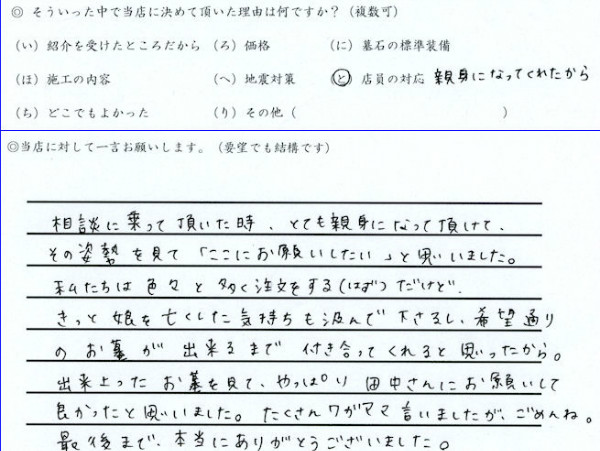 ◎ そういった中で当店に決めて頂いた理由は何ですか？（複数可）
（い）紹介を受けたところだから （ろ）価格 （に）墓石の標準装備
（ほ）施工の内容 （へ）地震対策 （と）店員の対応 親身になってくれたから
（ち）どこでもよかった （り）その他（ ）
◎当店に対して一言お願いします。（要望でも結構です）
相談に乗って頂いた時、とても親身になって頂けて、
その姿勢を見て「ここにお願いしたい」と思いました。
私たちは色々と多く注文をする(はず)だけど、
きっと娘を亡くした気持ちも汲んで下さるし、希望通り
のお墓が出来るまで付き合ってくれると思ったから。
出来上ったお墓を見て、やっぱり田中さんにお願いして
良かったと思いました。たくさんワガママ言いましたが、ごめんね。
最後まで、本当にありがとうございました。